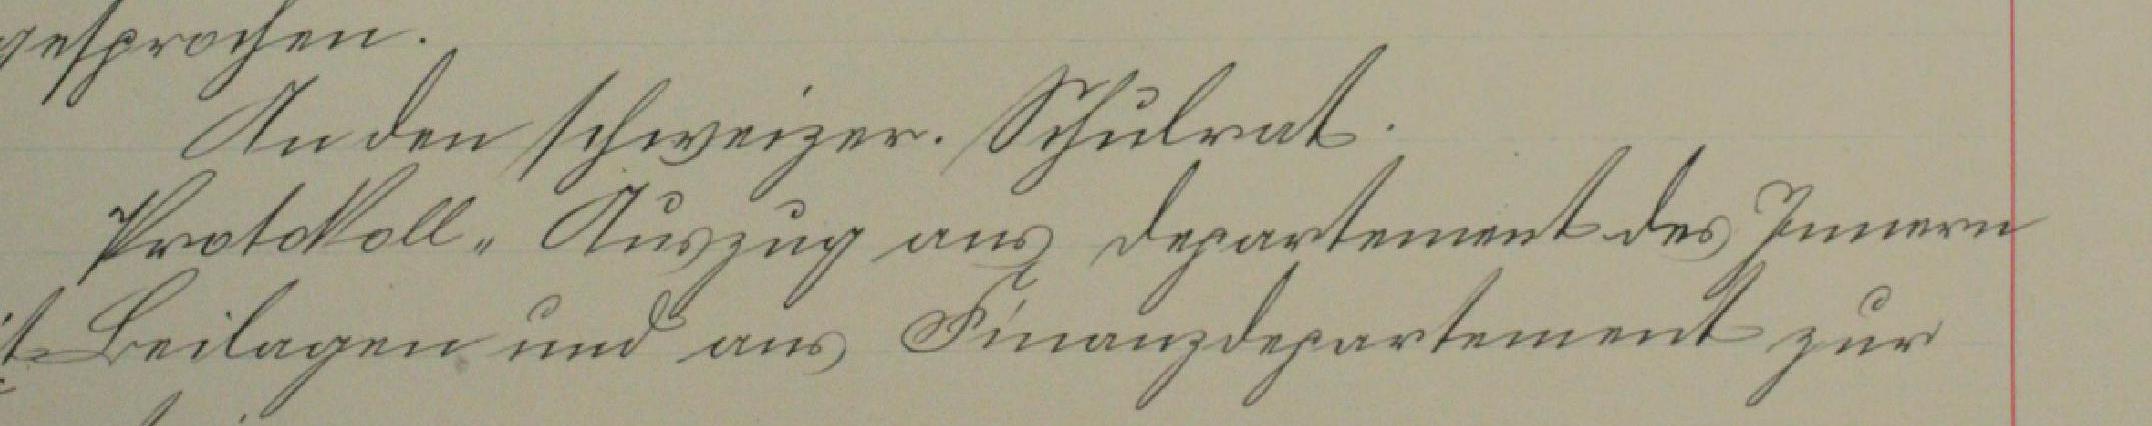 gesprochen.
An den schweizer. Schulrat.
Protokoll-Auszug ans Departement des Innern
Beilagen und ans Finanzdepartement zur